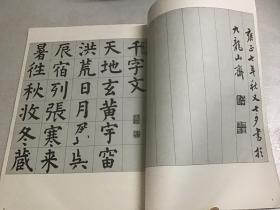 七年秋又七夕書於
龍山齋
千字文
天地玄黃宇宙
洪荒日月盈昃
辰宿列張寒來
暑往秋收冬藏